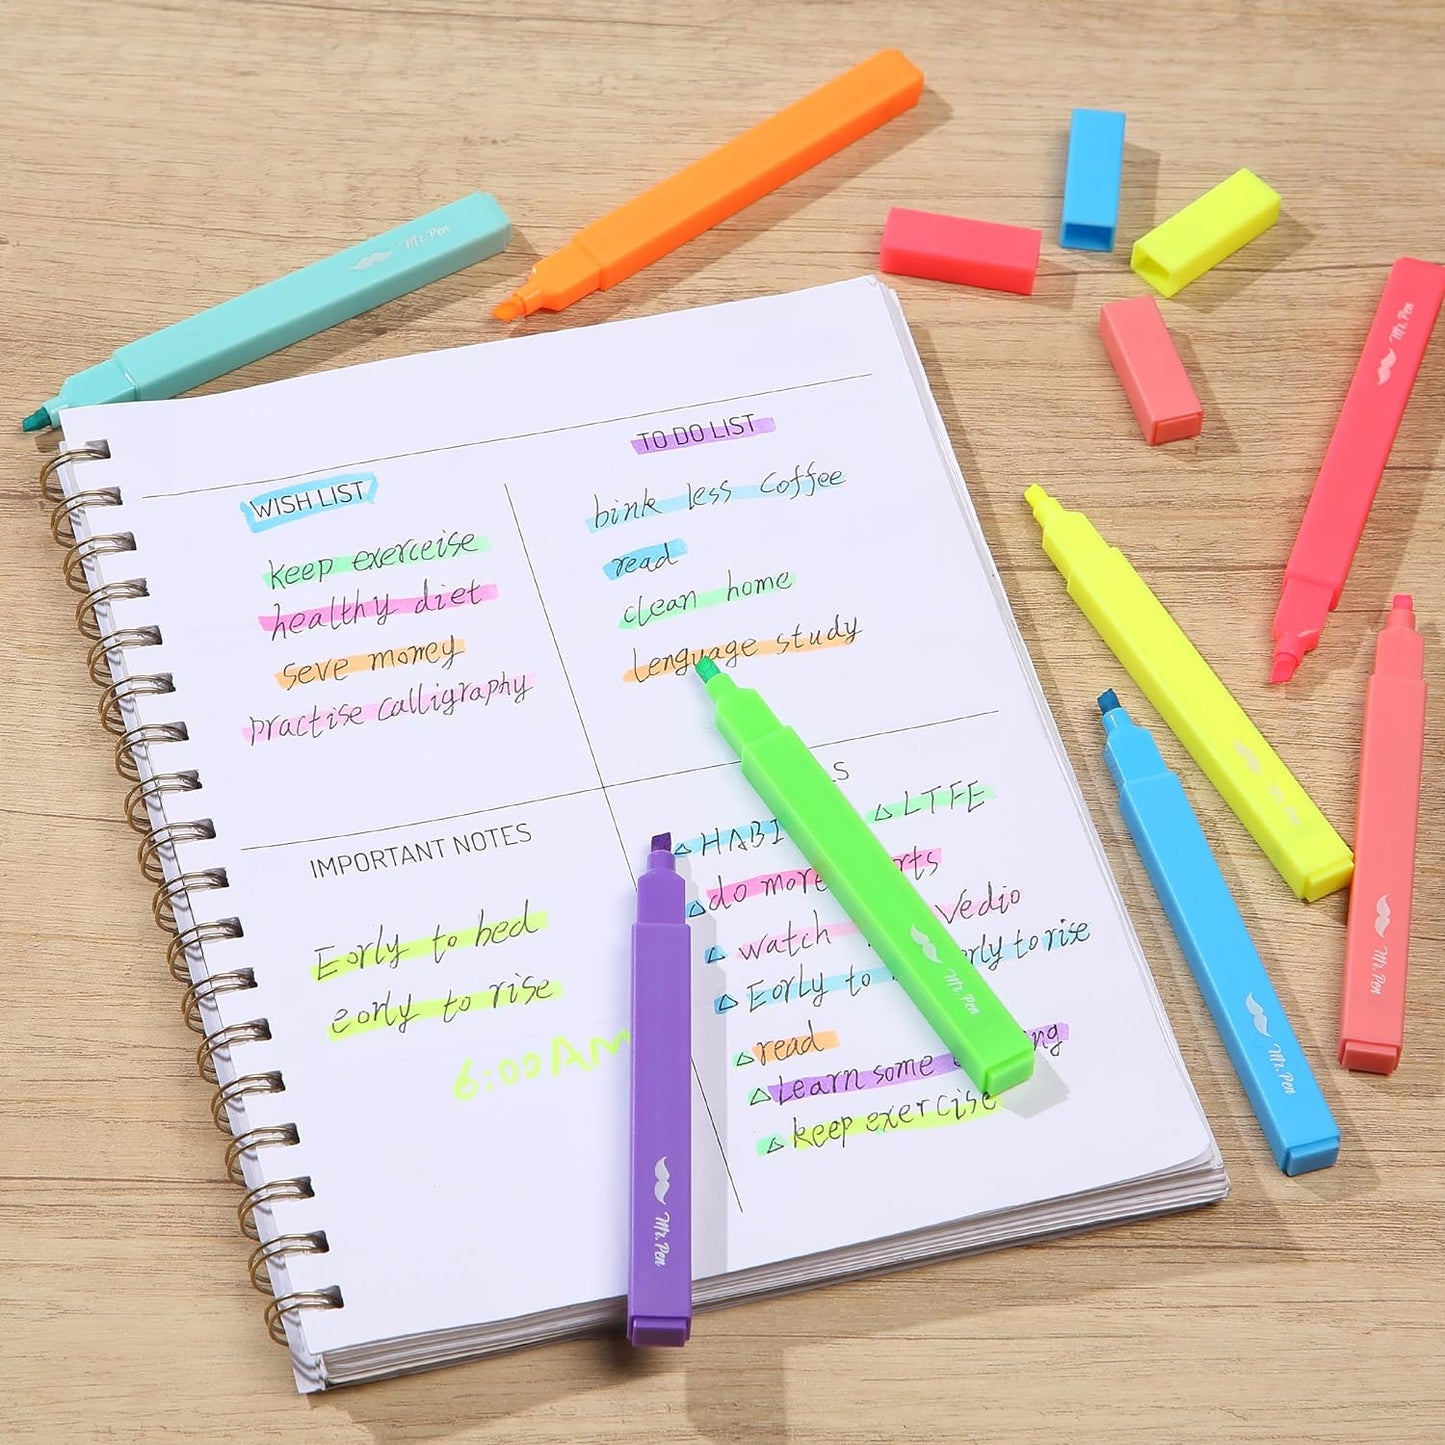 WISH LIST
keep exerceise
healthy diet
seve money
practise calligraphy
TO DO LIST
bink less coffee
read
clean home
lenguage study
IMPORTANT NOTES
Eorly to bed
eorly to rise
6:00AM
LS
△HABI △LTFE
△do more rts
△ watch Vedio
△ Eorly to rly to rise
△read
△Learn some ng
△keep exercise
Mr. Pen
Mr. Pen
Mr. Pen
Mr. Pen
Mr. Pen
Mr. Pen